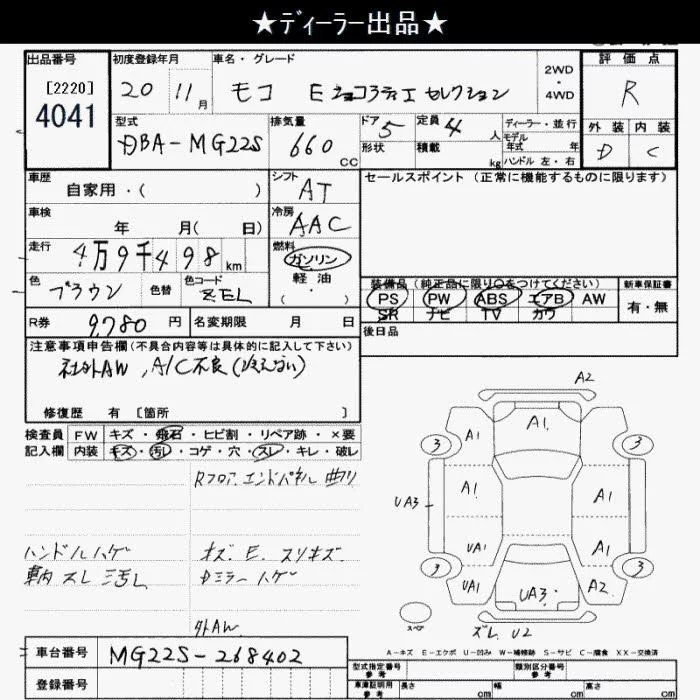 ★ディーラー出品★
出品番号 初度登録年月 車名・グレード 2WD・4WD 評価点
[2220] 20 11月 モコ Eショコラティエ セレクション R
4041
型式 排気量 ドア 定員 ディーラー・並行 外装 内装
DBA-MG22S 660cc 5 4人 モデル年式 年
形状 積載 kg ハンドル 左・右 D C
車歴 シフト セールスポイント(正常に機能するものに限ります)
自家用・( ) AT
車検 冷房
年 月( 日) AAC
走行 燃料
4万9千498km ガソリン
軽油
色 色替 色コード 装備品(純正品に限り○をつけてください) 新車保証書
ブラウン ZEL ( ・ ) PS PW ABS エアB AW 有・無
SR ナビ TV カワ
R券 9,780円 名変期限 月 日 後日品
注意事項申告欄(不具合内容等は具体的に記入して下さい)
社外AW, A/C不良(冷えない)
修復歴 有 [箇所 ]
検査員 FW キズ・飛石・ヒビ割・リペア跡・×要
記入欄 内装 キズ・汚レ・コゲ・穴・スレ・キレ・破レ
Rフロア.エンドパネル 曲り
ハンドルハゲ キズ.E.スリキズ.
車内 スレ 汚レ Dミラーハゲ
外AW
A2
A1 A1 A1
3 3
UA3 A1 A1
UA1 A1
3 3
UA1 UA3 A2
スペア ズレ U2
A-キズ E-エクボ U-凹み W-補修跡 S-サビ C-腐食 XX-交換済
車台番号 MG22S-268402
登録番号
型式指定番号 参考 類別区分番号 参考
車庫証明用 参考 長さ cm 幅 cm 高さ cm